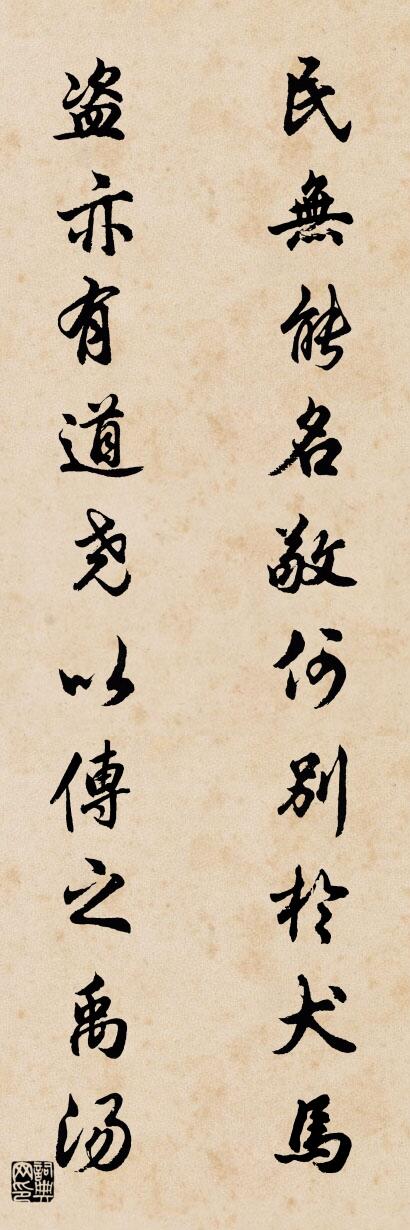 民無能名敬何別於犬馬
盜亦有道堯以傳之禹湯
詞典网印